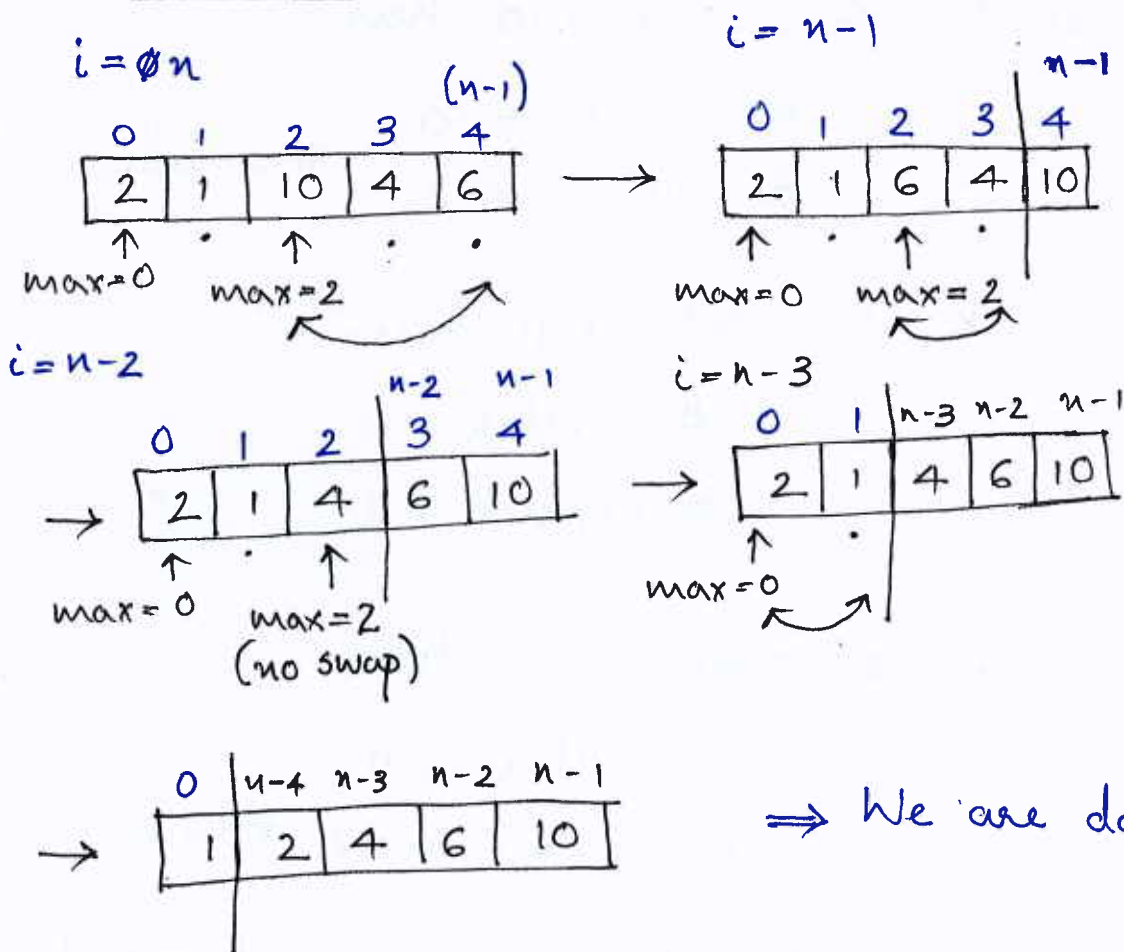 i = n
(n-1)
0 1 2 3 4
2 1 10 4 6
max=0 max=2
i = n-1
n-1
0 1 2 3 4
2 1 6 4 10
max=0 max=2
i = n-2
n-2 n-1
0 1 2 3 4
→ 2 1 4 6 10
max=0 max=2
(no swap)
i = n-3
0 1 n-3 n-2 n-1
→ 2 1 4 6 10
max=0
0 n-4 n-3 n-2 n-1
→ 1 2 4 6 10
⇒ We are